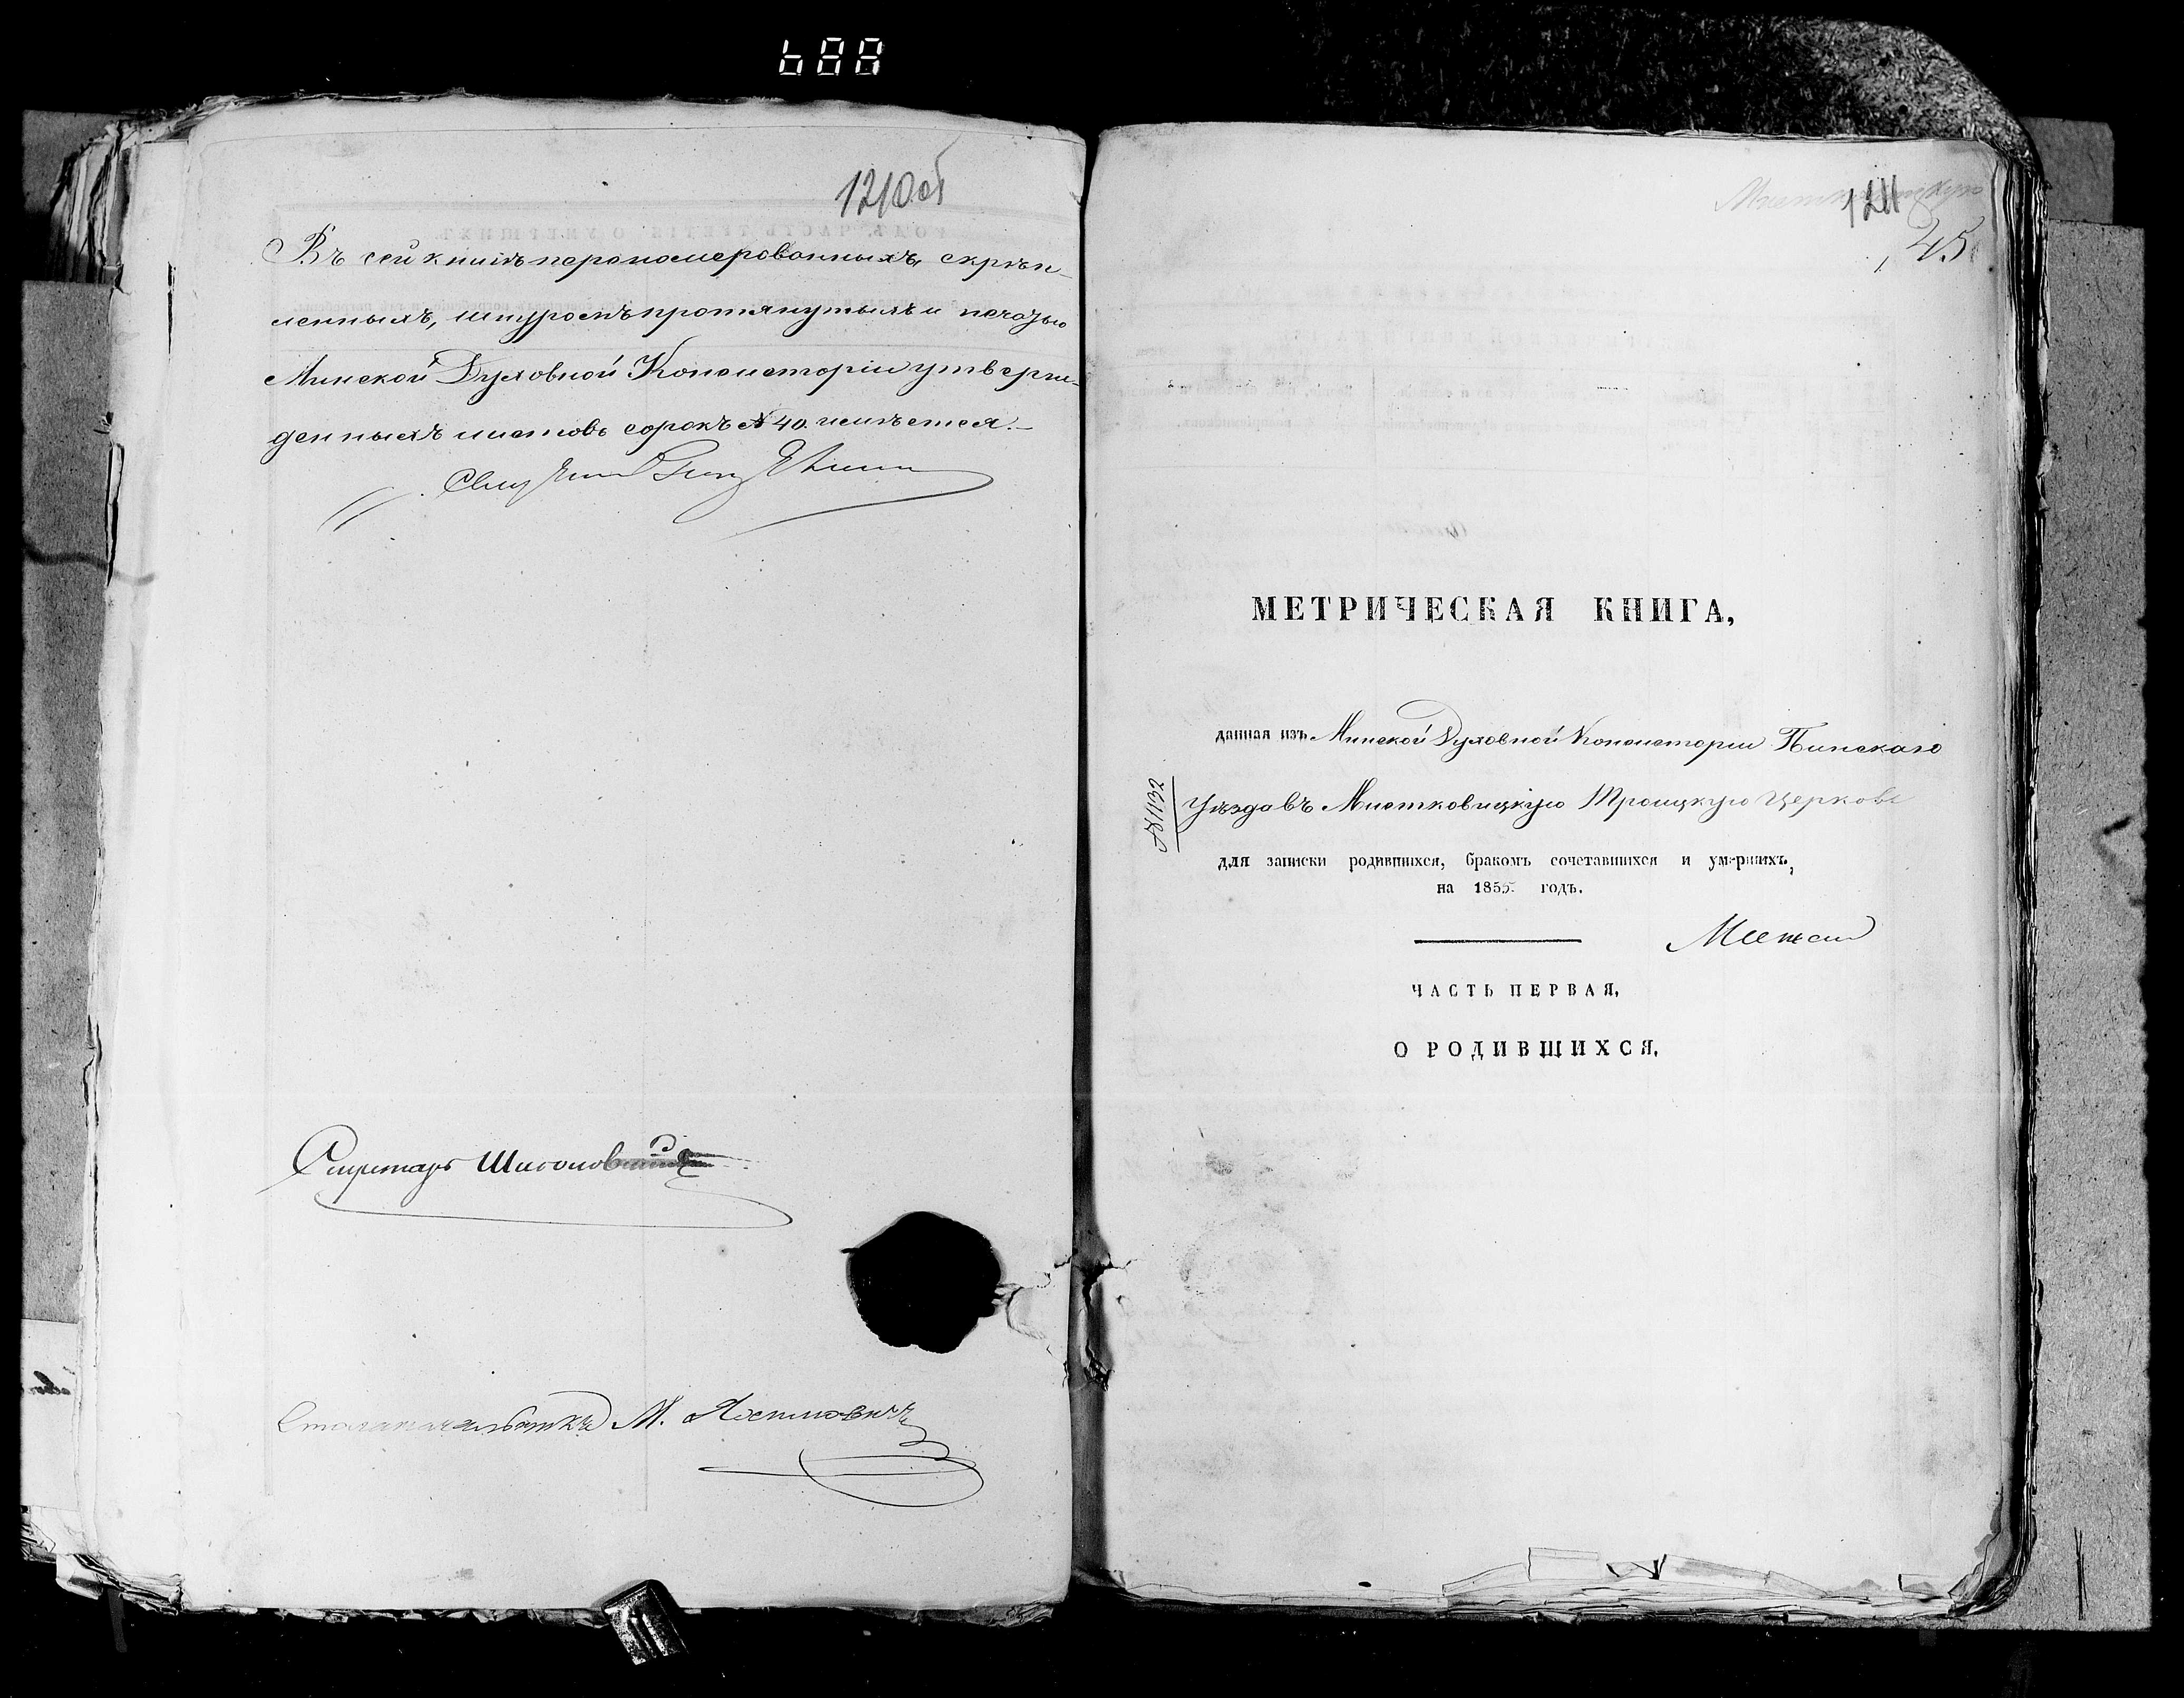 688
1210об
Въ сей книгѣ перономерованныхъ, скрѣп-
ленныхъ, шнуромъ протянутыхъ и печатью
Минской Духовной Консисторіи утверж-
денныхъ листовъ сорокъ № 40. имѣется.
Секретарь
Столоначальникъ М.
1211
45
МЕТРИЧЕСКАЯ КНИГА,
данная изъ Минской Духовной Консисторіи Пинскаго
Уѣзда въ Мистковицкую Троицкую Церковь
№ 1132
для записки родившихся, бракомъ сочетавшихся и умершихъ,
на 1855 годъ.
ЧАСТЬ ПЕРВАЯ,
О РОДИВШИХСЯ.